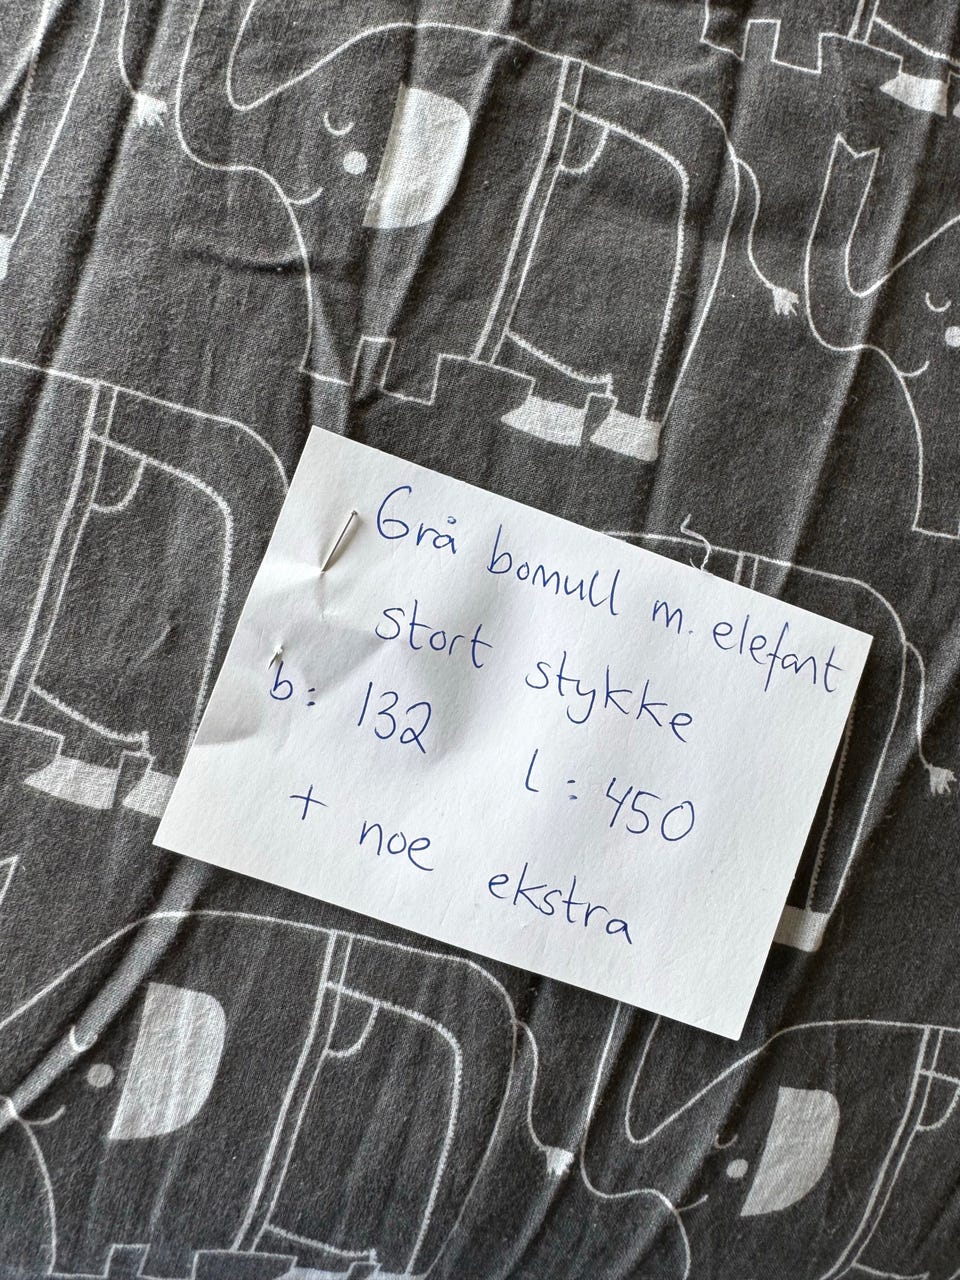 Grå bomull m. elefant
stort stykke
b: 132 l: 450
+ noe ekstra